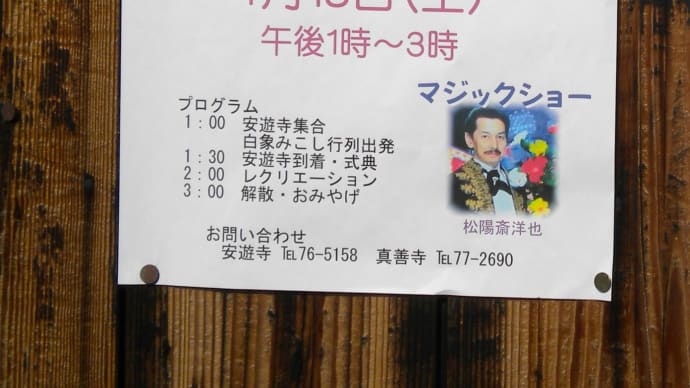 午後1時～3時
マジックショー
プログラム
1：00 安遊寺集合
白象みこし行列出発
1：30 安遊寺到着・式典
2：00 レクリエーション
3：00 解散・おみやげ
松陽斎洋也
お問い合わせ
安遊寺 ℡76-5158 真善寺 ℡77-2690